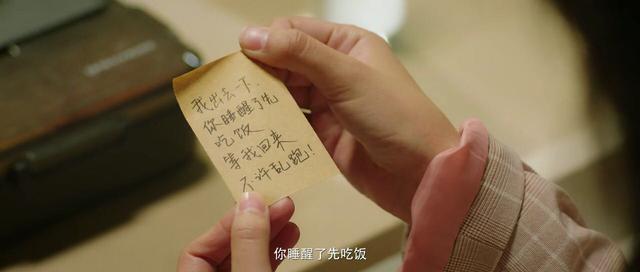 我出去一下,
你睡醒了先
吃饭
等我回来
不许乱跑!
你睡醒了先吃饭